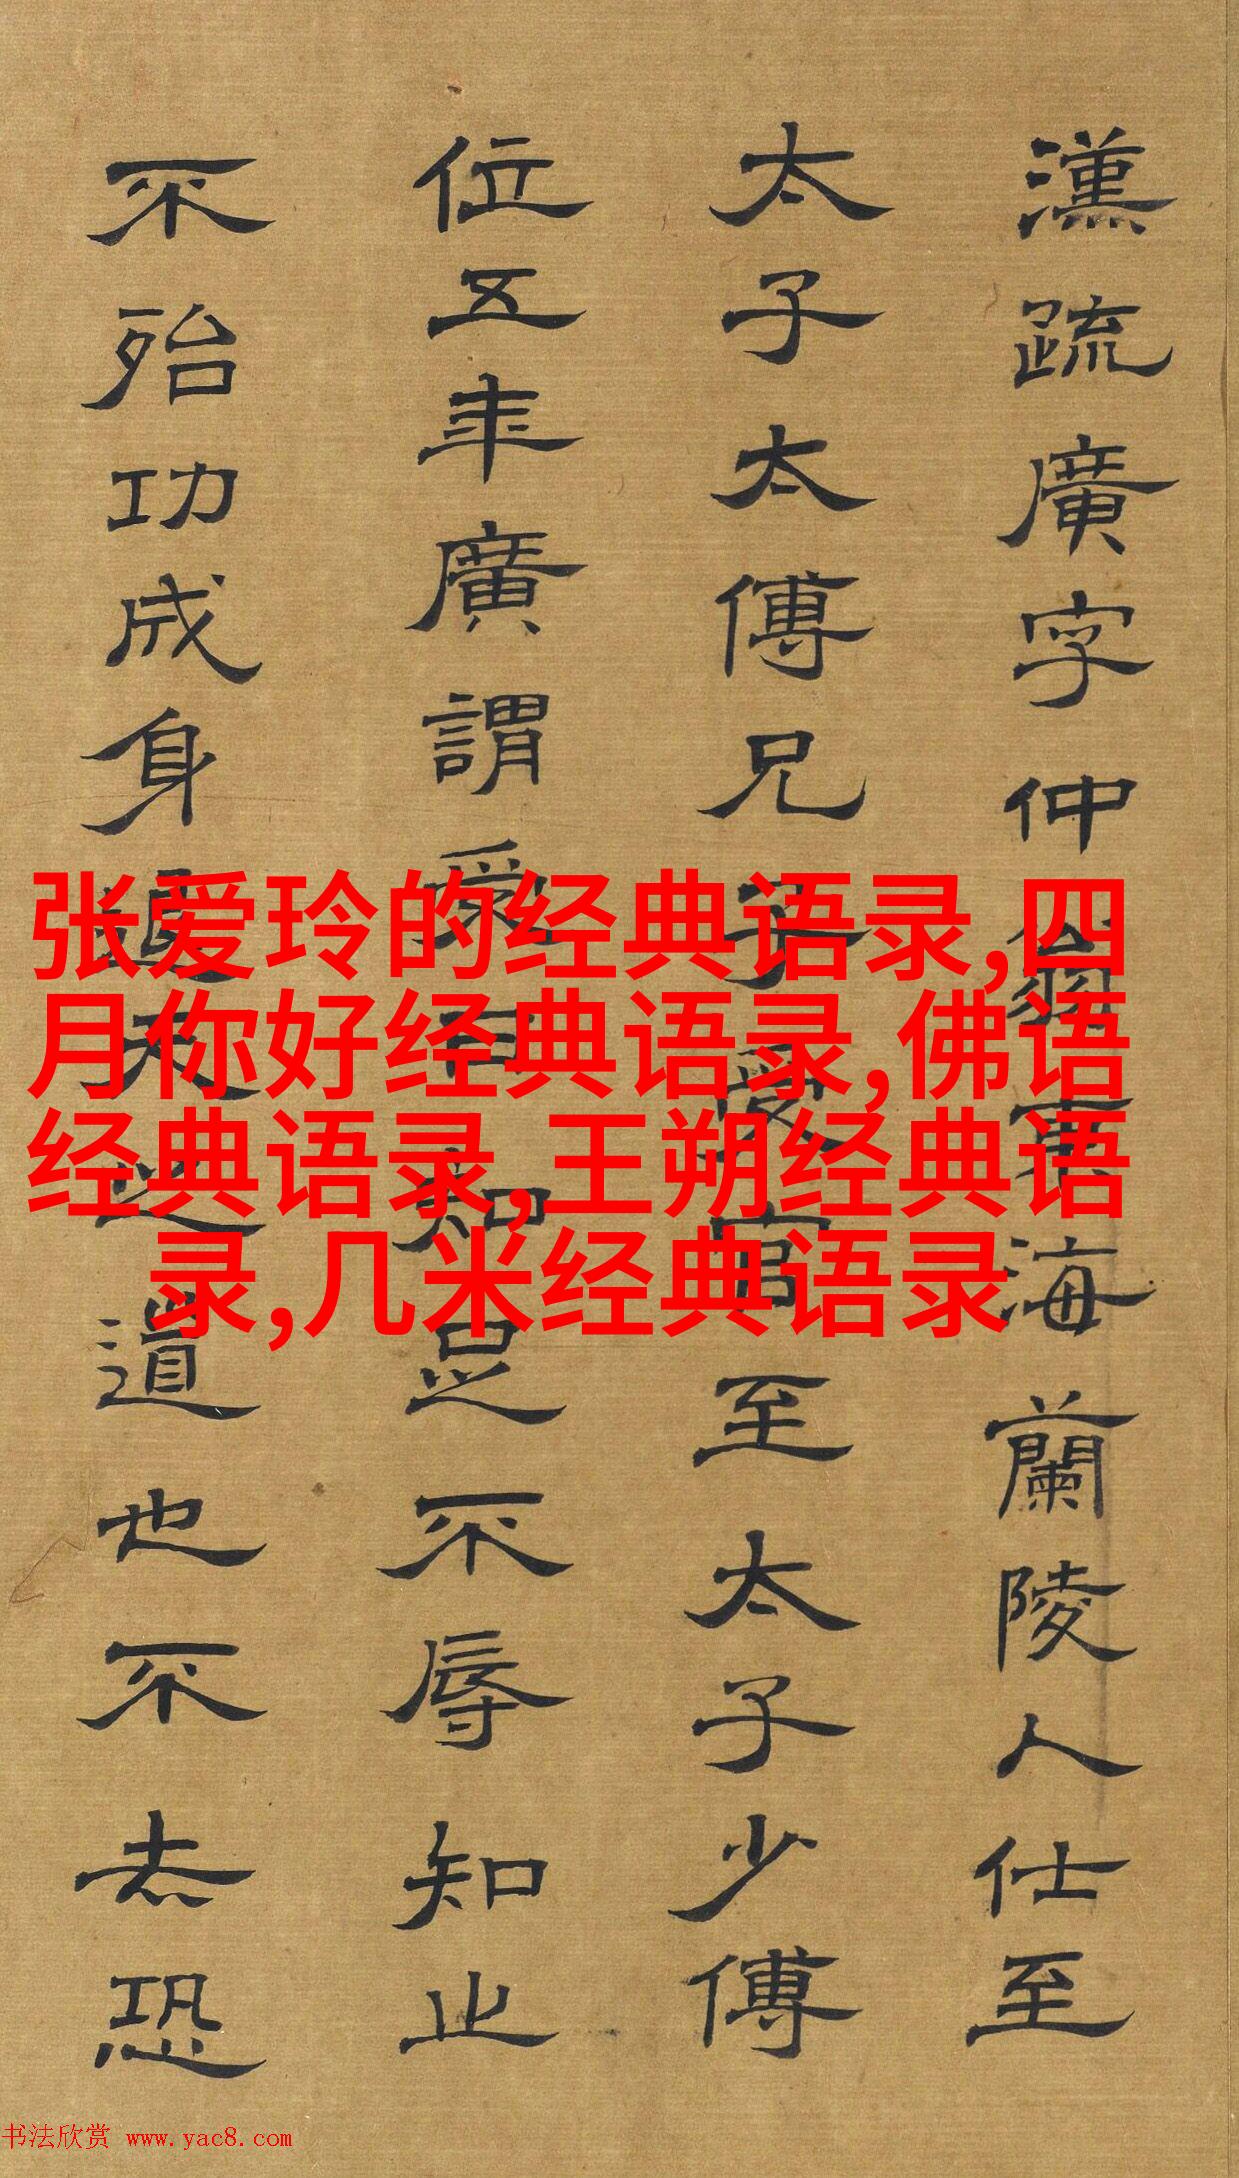 漢疏廣字仲翁東海蘭陵人仕至
太子太傅兄子受官至太子少傅
位五年廣謂受曰知足不辱知止
不殆功成身退天之道也不去恐
张爱玲的经典语录,四
月你好经典语录,佛语
经典语录,王朔经典语
录,几米经典语录
书法欣赏 www.yac8.com